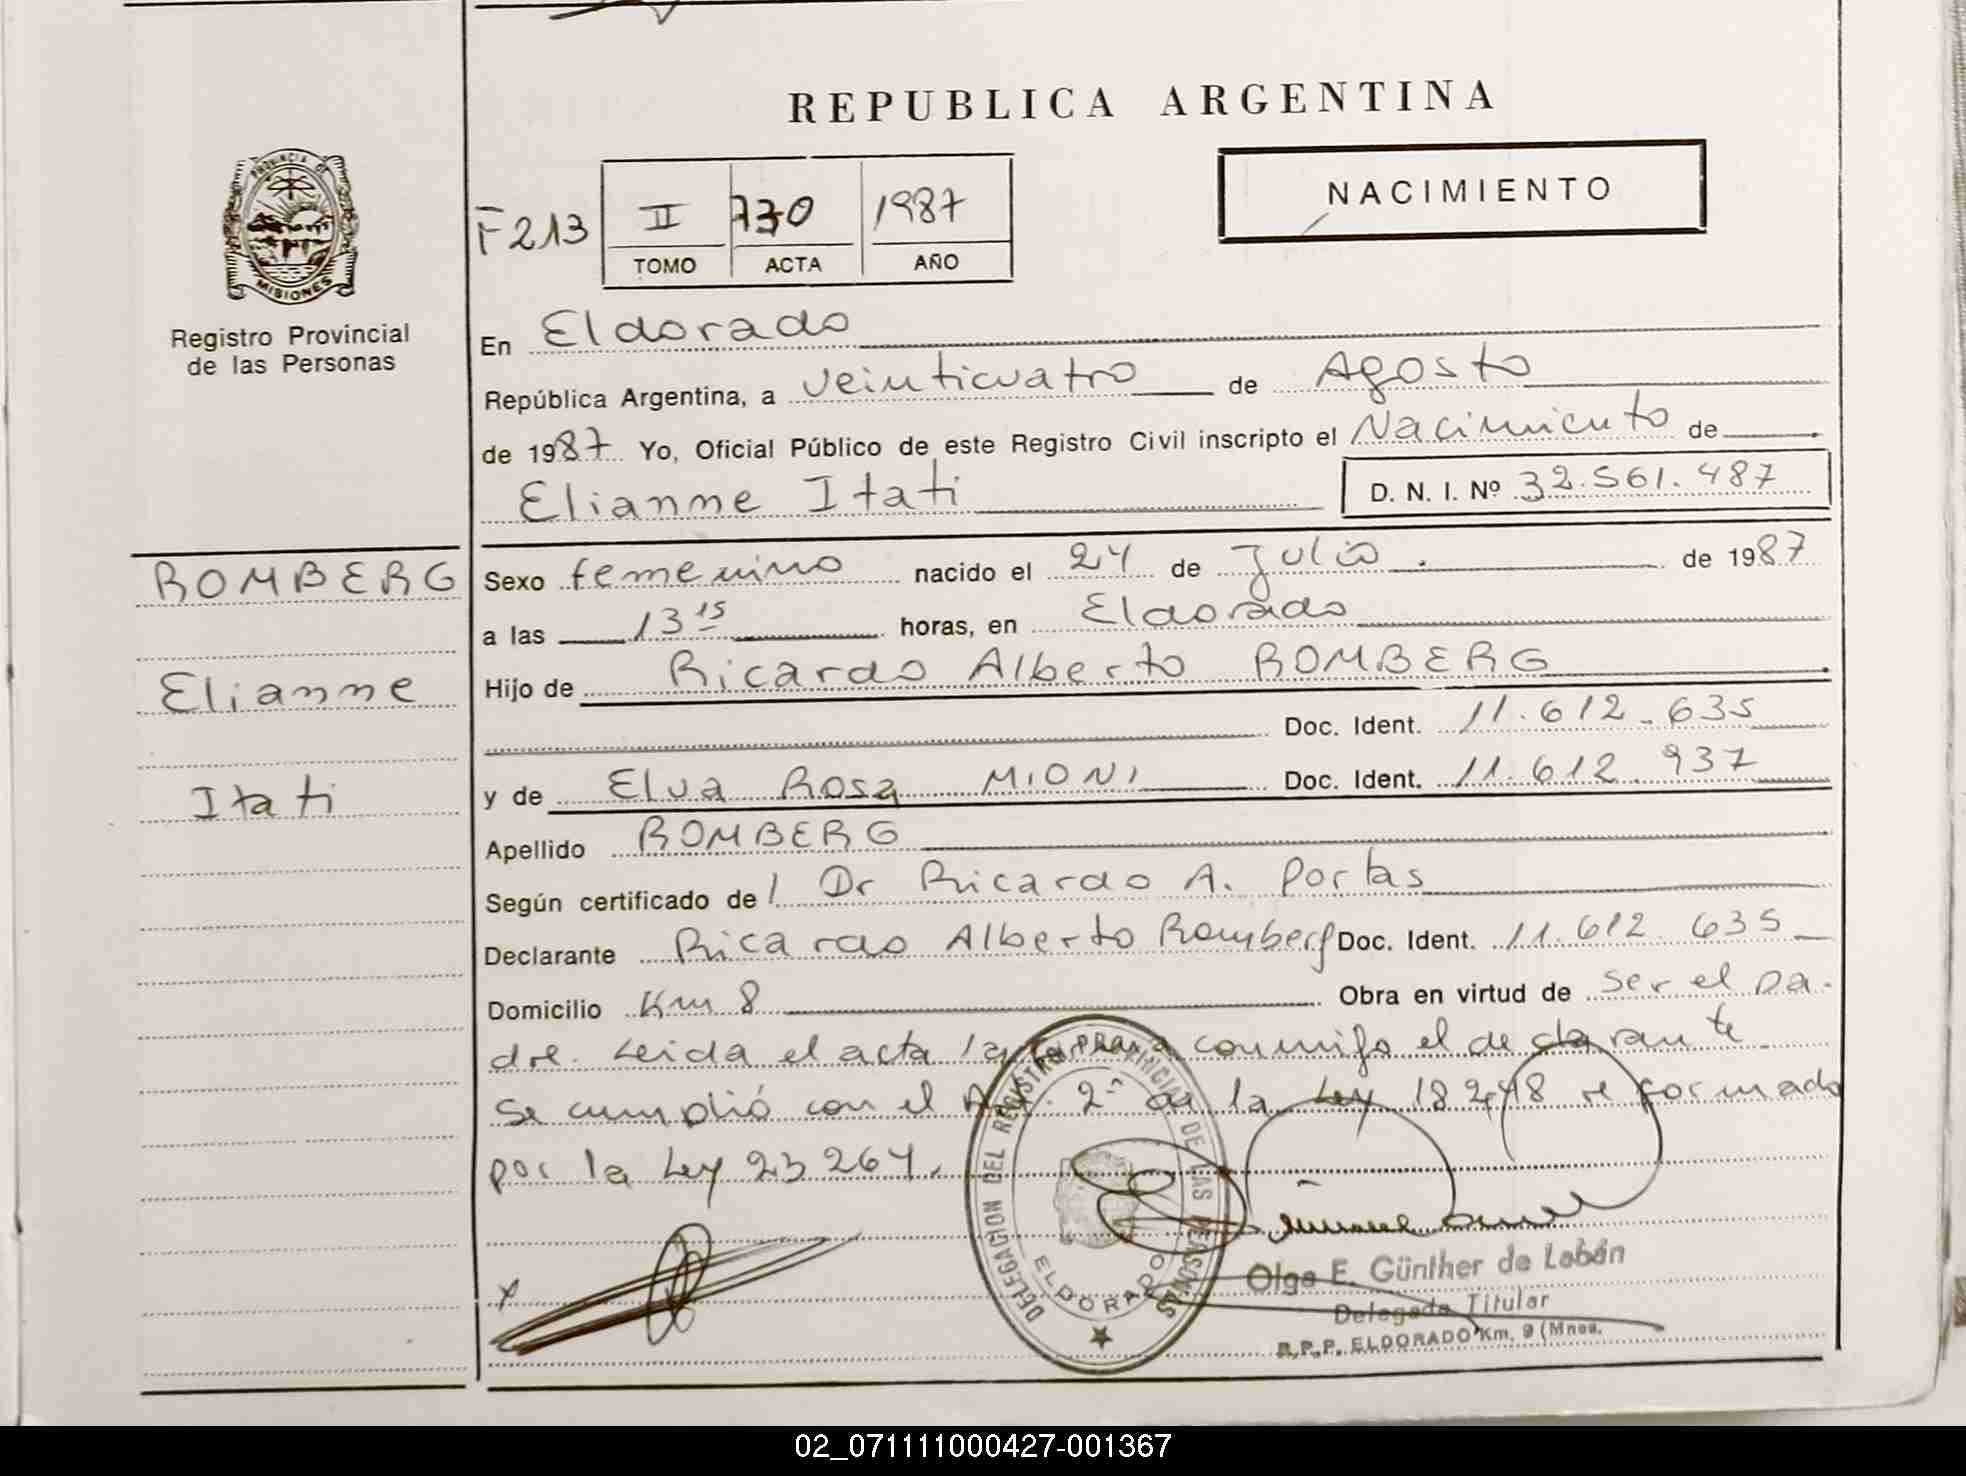 REPUBLICA ARGENTINA
PROVINCIA DE
MISIONES
Registro Provincial
de las Personas
F213
II 730 1987
TOMO ACTA AÑO
NACIMIENTO
En Eldorado
República Argentina, a veinticuatro de Agosto
de 1987 Yo, Oficial Público de este Registro Civil inscripto el Nacimiento de
Elianne Itati D. N. I. Nº 32.561.487
ROMBERG
Elianne
Itati
Sexo femenino nacido el 24 de Julio. de 1987
a las 13 15 horas, en Eldorado
Hijo de Ricardo Alberto ROMBERG
Doc. Ident. 11.612.635
y de Elva Rosa MIONI Doc. Ident. 11.612.937
Apellido ROMBERG
Según certificado de/ Dr Ricardo A. Portas
Declarante Ricardo Alberto Romberg Doc. Ident. 11.612.635
Domicilio Km 8 Obra en virtud de ser el pa-
dre. Leida el acta la firma conmigo el declarante
Se cumplió con el Art. 2º de la Ley 18248 reformado
por la Ley 23264.
DELEGACION DEL REGISTRO PROVINCIAL DE LAS PERSONAS
ELDORADO
x
Olga E. Günther de Lobán
Delegada Titular
R.P.P. ELDORADO Km. 9 (Mnes.
02_071111000427-001367